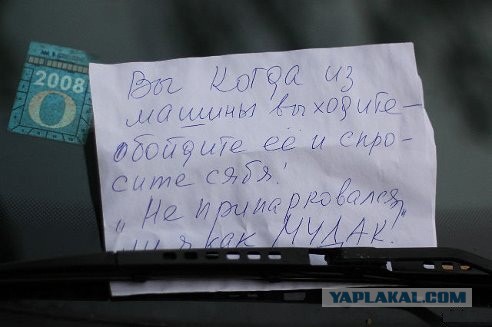 2008
О
Вы когда из
машины выходите —
обойдите её и спро-
сите сябя!
"Не припарковался
ли я как МУДАК.
YAPLAKAL.COM